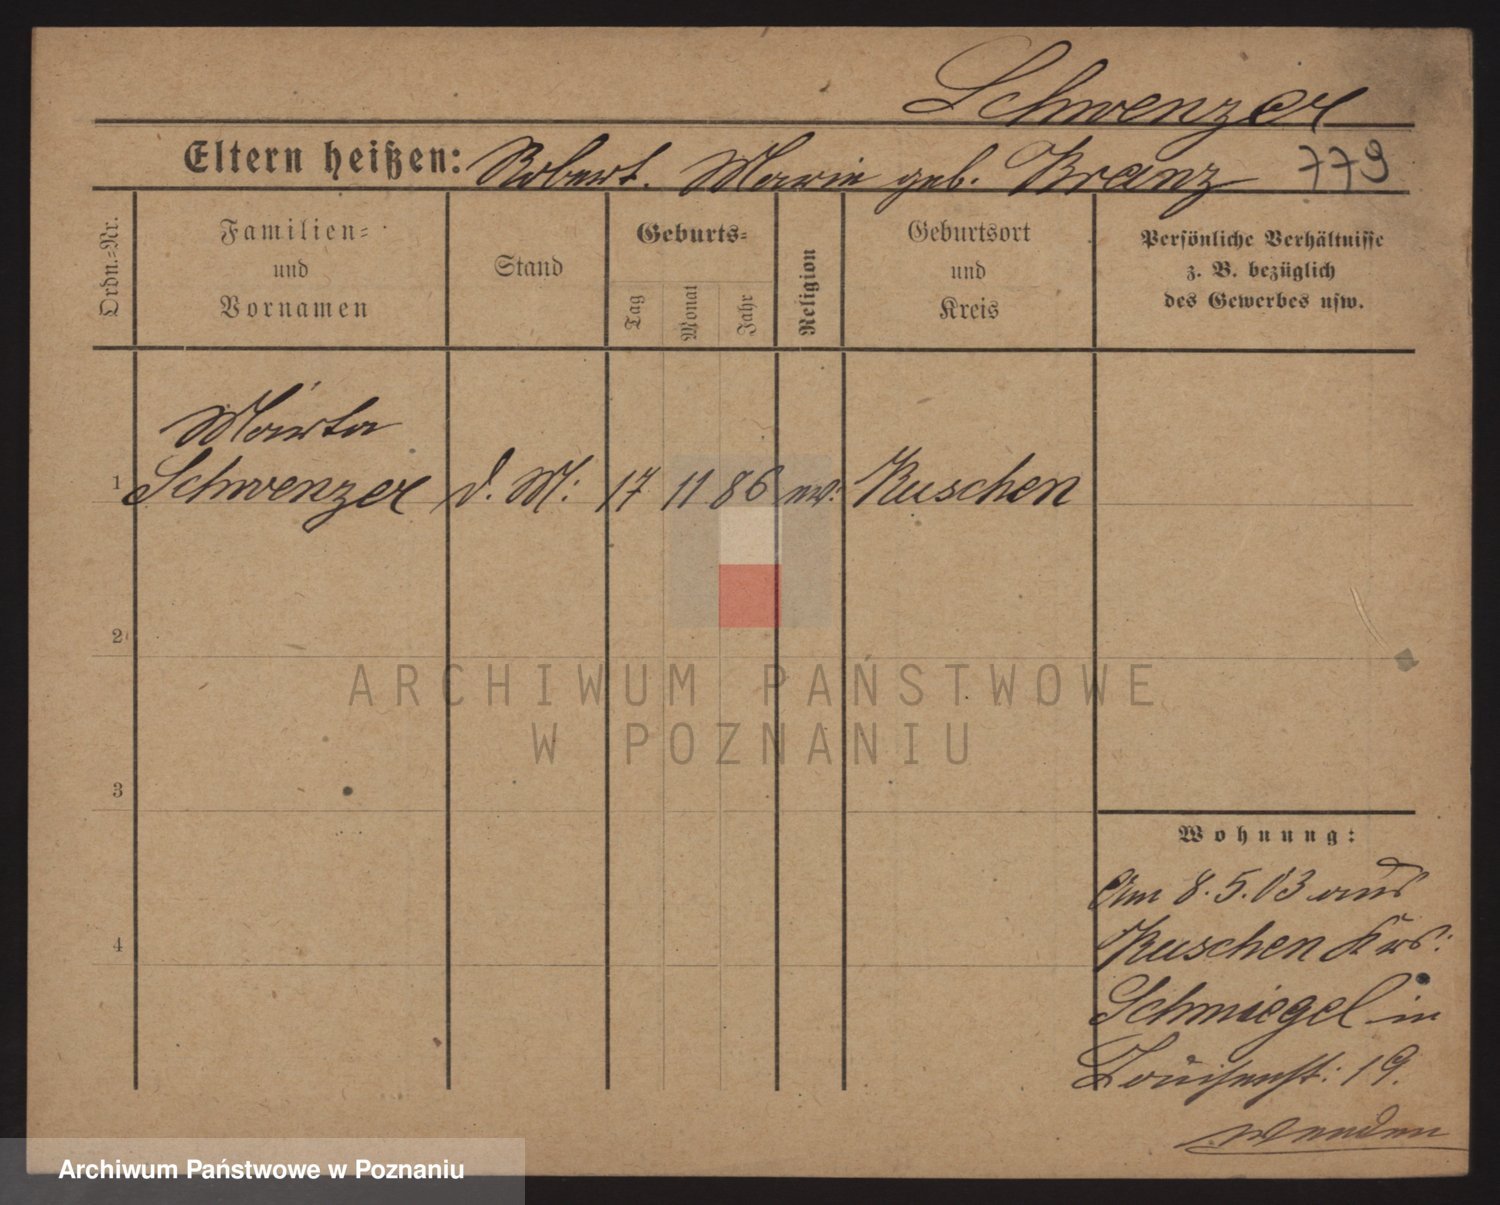 Schwenzer
Eltern heißen: Robert. Marie geb. Kranz 779
Ordn.=Nr.
Familien=
und
Vornamen
Stand
Geburts=
Tag
Monat
Jahr
Religion
Geburtsort
und
Kreis
Persönliche Verhältnisse
z. B. bezüglich
des Gewerbes usw.
Marta
1 Schwenzer d. M: 17 11 86 ev: Kuschen
2
3
4
Wohnung:
Am 8.5.03 aus
Kuschen Krs:
Schmiegel in
Louisenst: 19.
wenden
ARCHIWUM PAŃSTWOWE
W POZNANIU
Archiwum Państwowe w Poznaniu